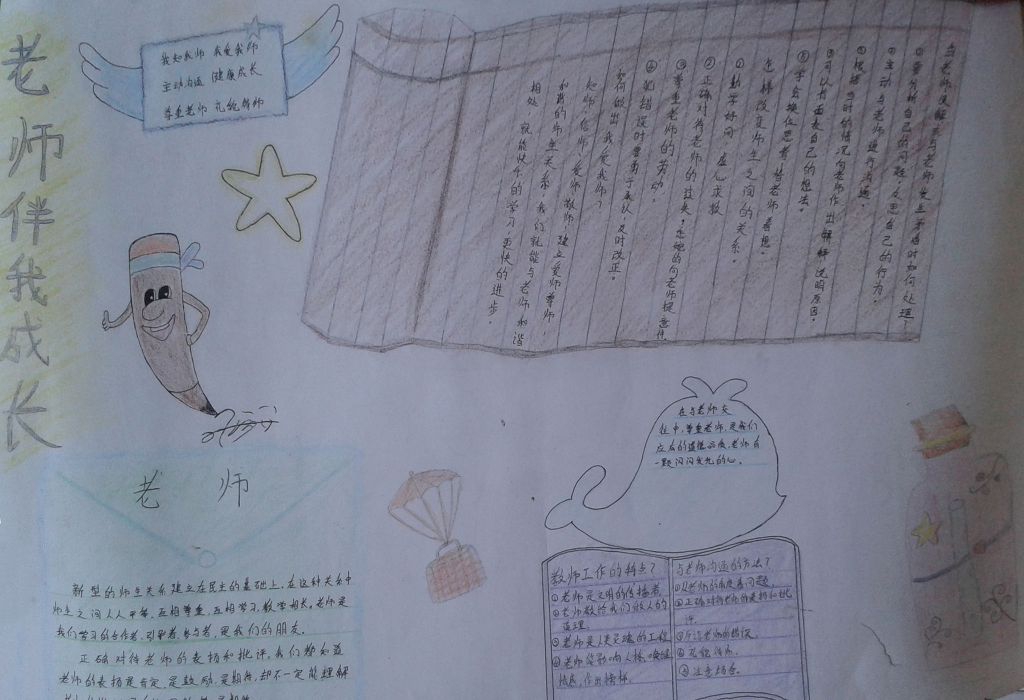 老师伴我成长
我知我师 我爱我师
主动沟通 健康成长
尊重老师 礼貌待师
当老师误解或与老师发生矛盾时如何处理?
①要分析自己的问题,反思自己的行为。
②主动与老师进行沟通。
③根据当时的情况向老师作出解释说明原因。
④可以书面表自己的想法。
⑤学会换位思考,替老师着想。
怎样改变师生之间的关系。
①勤学好问 虚心求教
②正确对待老师的过失,委婉的向老师提意件
③尊重老师的劳动.
④犯错误时要勇于承认,及时改正。
如何做出 我爱我师?
知师,信师,爱师,敬师,建立爱师尊师,
和谐的师生关系,我们就能与老师和谐
相处 就能快乐的学习,更快的进步。
老 师
新型的师生关系建立在民主的基础上,在这种关系中
师生之间人人平等,互相尊重,互相学习,教学相长,老师是
我们学习的合作者,引导者,参与者,更我们的朋友.
正确对待老师的表扬和批评,我们都知道
老师的表扬是肯定,是鼓励,是期待,却不一定能理解
在与老师交
往中,尊重老师,是我们
应有的道德品质,老师有
一颗闪闪发光的心。
教师工作的特点?
①老师是文明的传播者.
②老师教给我们做人的
道理.
③老师是人类灵魂的工程
与老师沟通的方法?
①从老师的角度看问题.
②正确对待老师的表扬和批
评.
③原谅老师的错误.
④礼貌待师.
⑤注意场合.